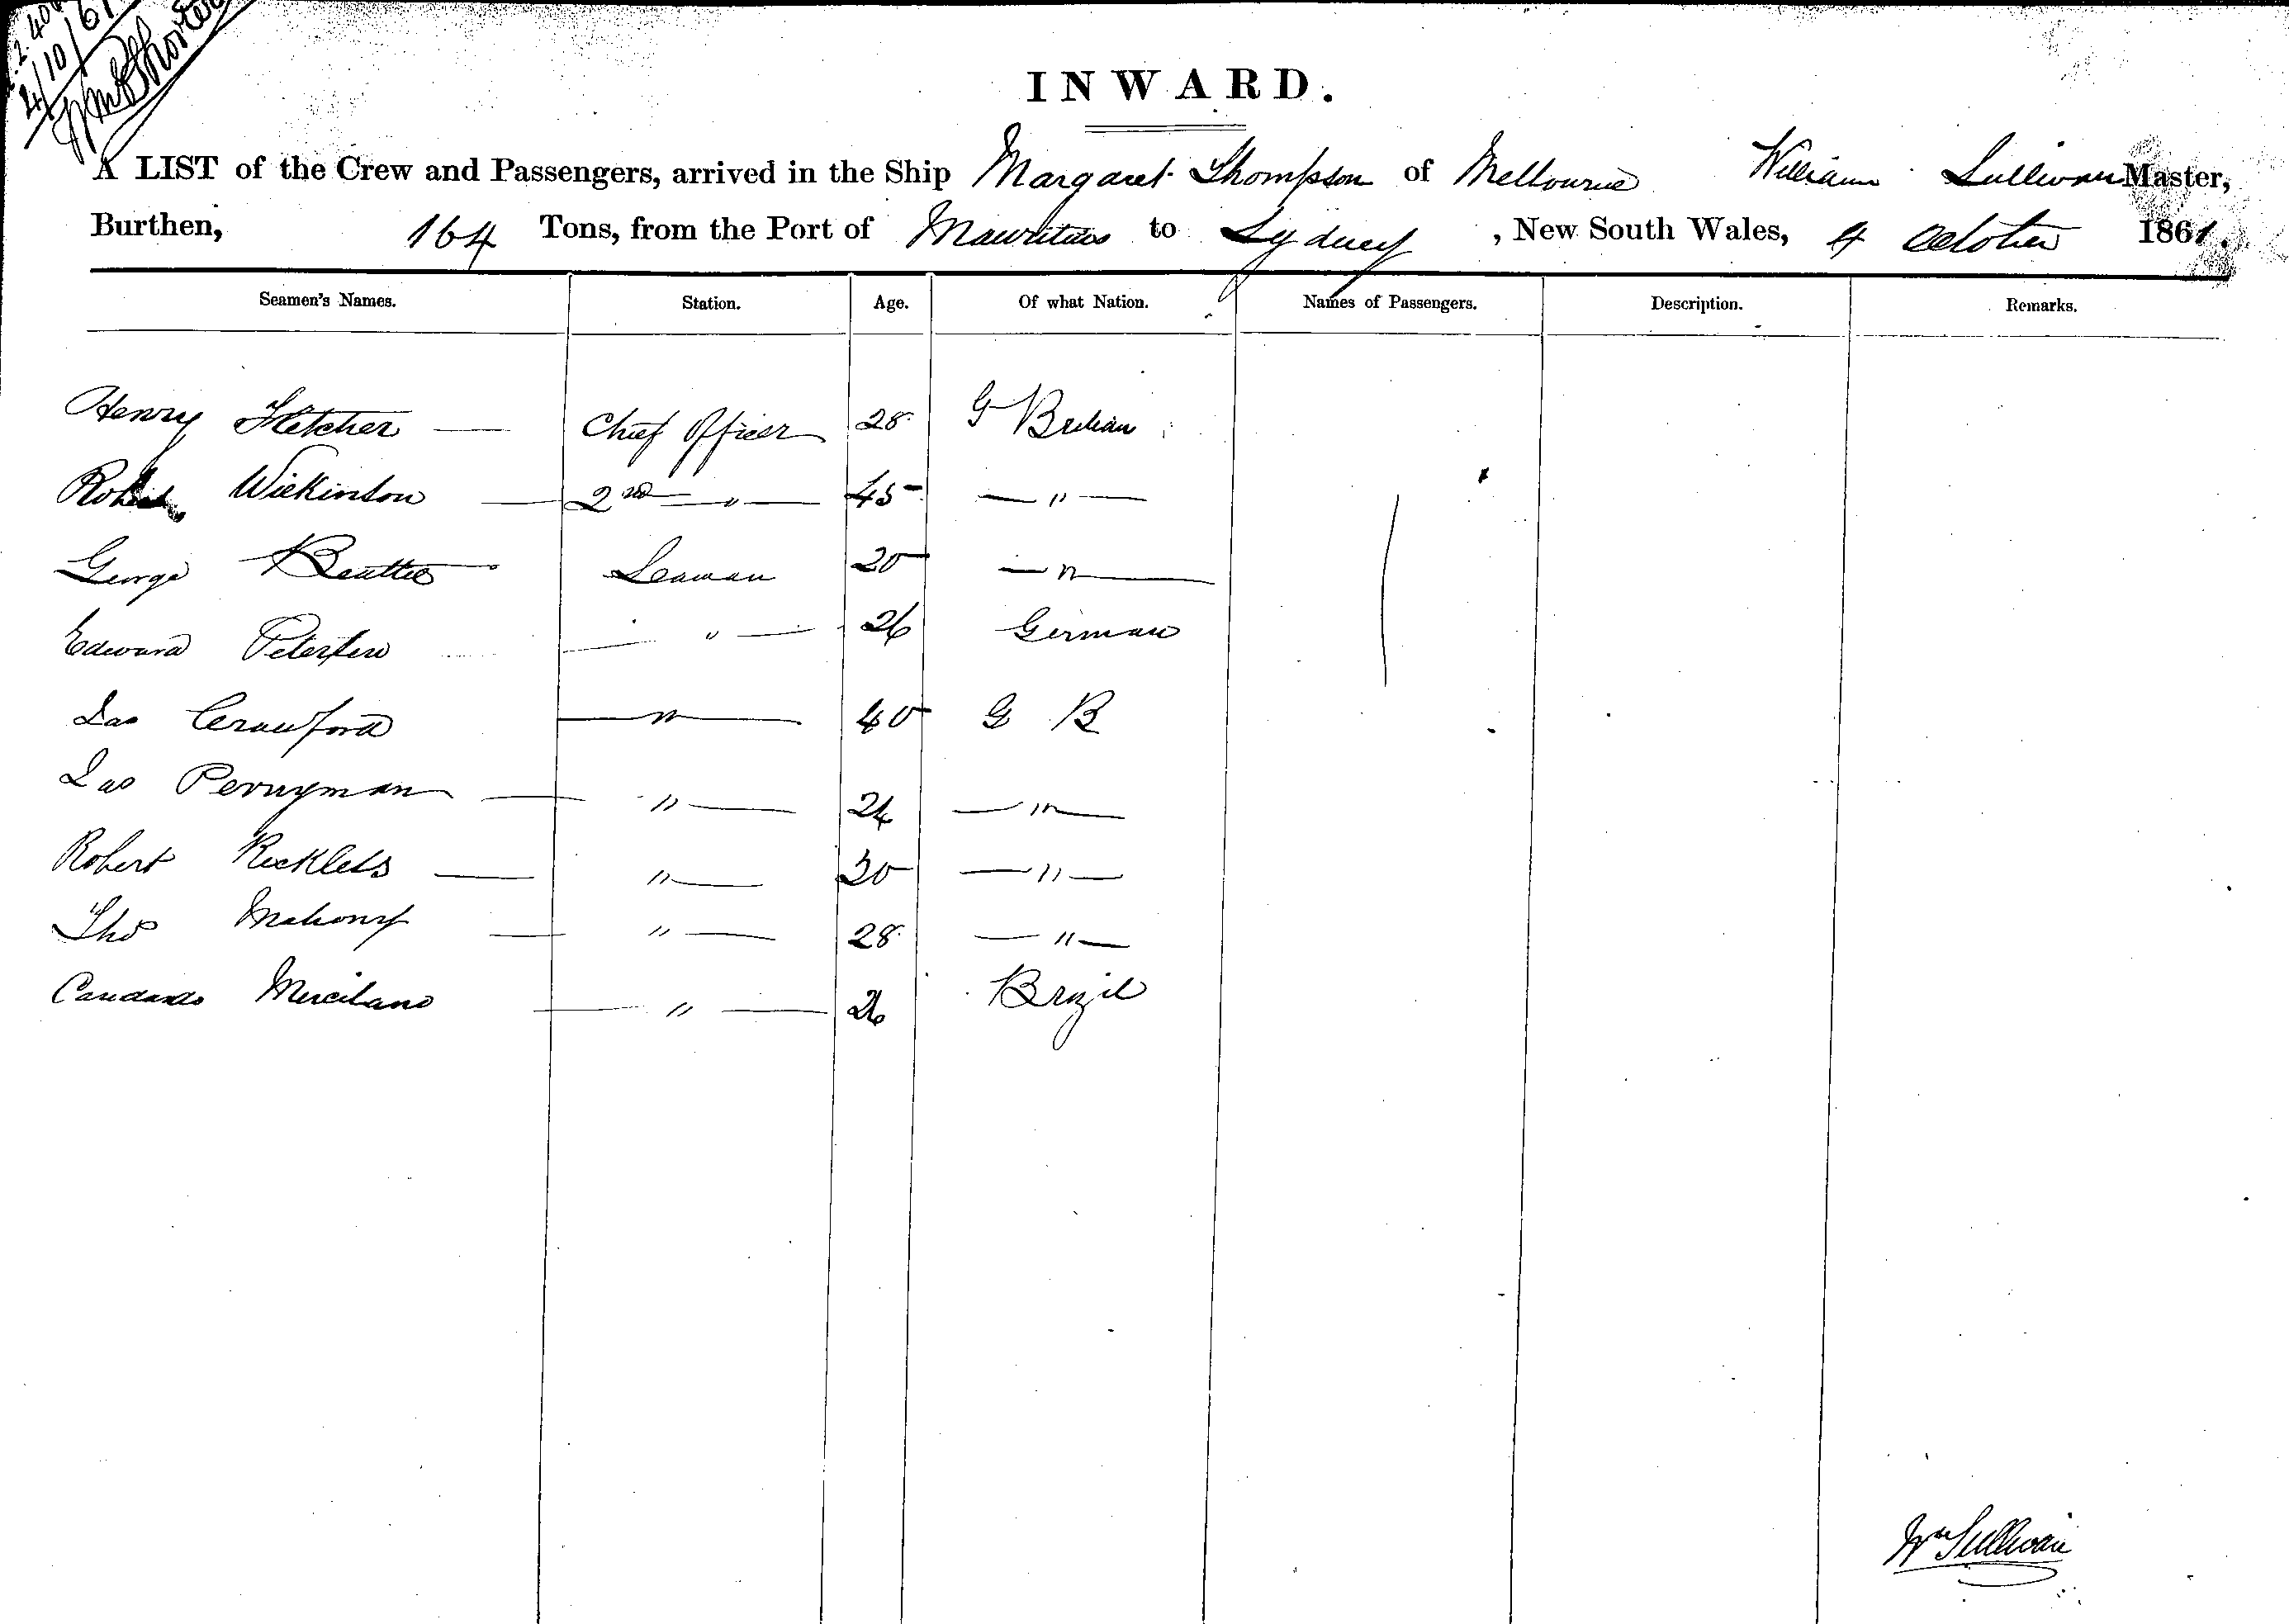 4/10/61
INWARD.
A LIST of the Crew and Passengers, arrived in the Ship Margaret Thompson of Melbourne William Sullivan Master,
Burthen, 164 Tons, from the Port of Mauritius to Sydney, New South Wales, 4 October 1861.
Seamen's Names. Station. Age. Of what Nation. Names of Passengers. Description. Remarks.
Henry Fletcher — Chief Officer 28 G Britian
Robert Wilkinson — 2nd — " — 45 — " —
George Beattie Seaman 20 — " —
Edward Petersen — " — 26 German
Jas Crawford — " — 40 G B
Jas Perryman — " — 24 — " —
Robert Ricklets — " — 30 — " —
Thos Mahony — " — 28 — " —
Mercilano — " — 26 Brazil
Wm Sullivan